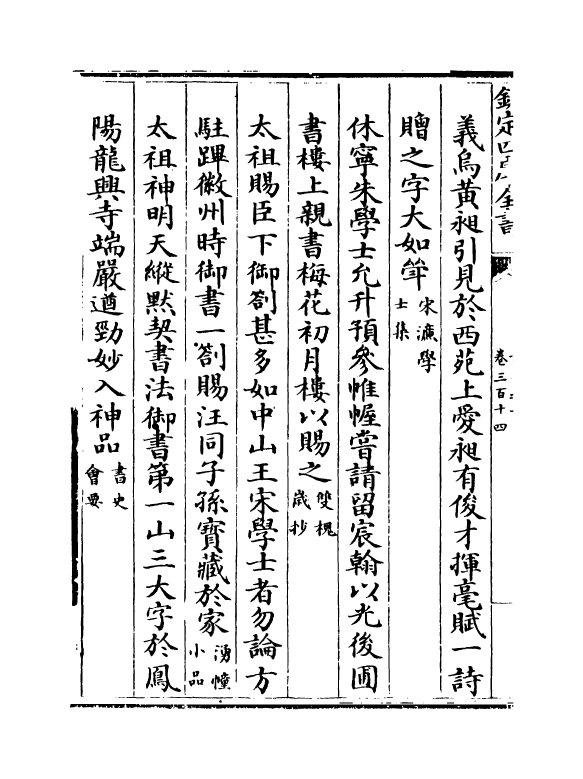 欽定四庫全書
卷三百十四
義烏黃昶引見於西苑上愛昶有俊才揮毫賦一詩
贈之字大如掌宋濂學士集
休寧朱學士允升預參帷幄嘗請留宸翰以光後圃
書樓上親書梅花初月樓以賜之雙槐歲抄
太祖賜臣下御劄甚多如中山王宋學士者勿論方
駐蹕徽州時御書一劄賜汪同子孫寶藏於家湧幢小品
太祖神明天縱默契書法御書第一山三大字於鳳
陽龍興寺端嚴遒勁妙入神品書史會要